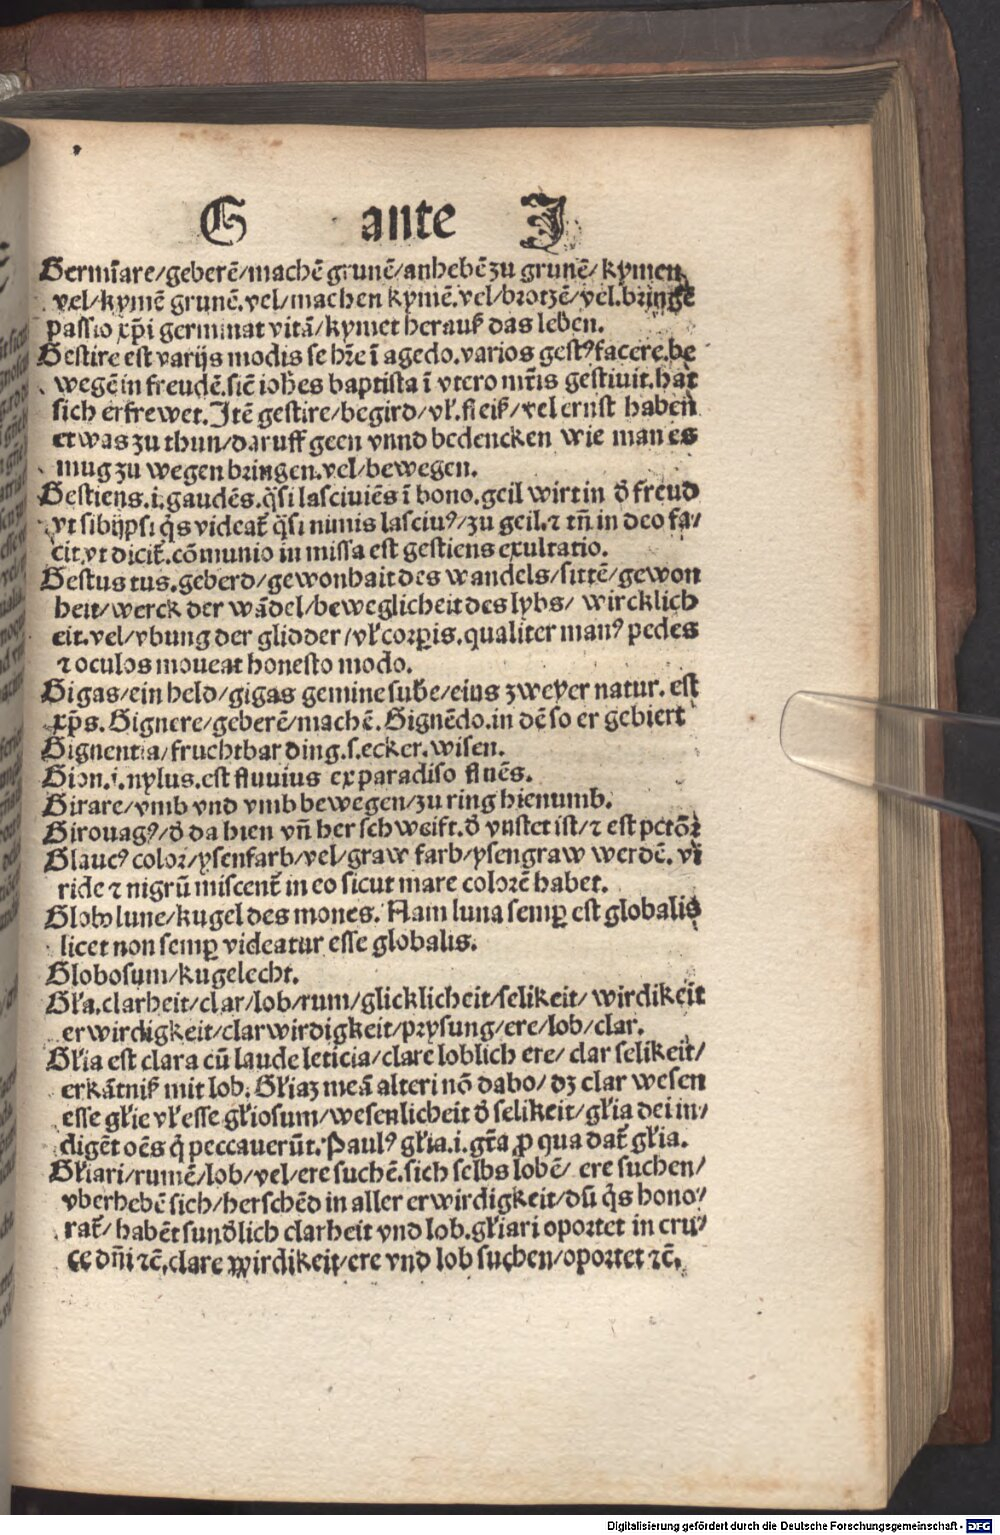 G ante J
Germīare/geberē/machē grunē/anhebē zu grunē/kymen
vel/kymē grunē.vel/machen kymē.vel/brotzē/vel.bringē
passio xp̄i germinat vitā/kymet herauß das leben.
Gestire est varijs modis se hr̄e ī agēdo.varios gestꝰ facere.be
wegē in freudē.sič ioh̄es baptista ī vtero mr̄is gestiuit.hat
sich erfrewet.Itē gestire/begird/vł.fleiß/vel ernst haben
etwas zu thun/daruff geen vnnd bedencken wie man es
mug zu wegen bringen.vel/bewegen.
Gestiens.i.gaudēs.q̄si lasciuiēs ī bono.geil wirt in d̄ freud
vt sibijpsi q̄s videat̄ q̄si nimis lasciuꝰ/zu geil.⁊ tn̄ in deo fa/
cit.vt dicit̄.cōmunio in missa est gestiens exultatio.
Gestus tus.geberd/gewonhait des wandels/sittē/gewon
heit/werck der wādel/beweglicheit des lybs/ wircklich
eit.vel/vbung der glidder/vł corꝑis.qualiter manꝰ pedes
⁊ oculos moueat honesto modo.
Gigas/ein held/gigas gemine sub̄e/eius zweyer natur. est
xp̄s. Gignere/geberē/machē. Gignēdo.in dē so er gebiert
Gignentia/fruchtbar ding.s.ecker.wisen.
Gion.i.nylus.est fluuius ex paradiso fluēs.
Girare/vmb vnd vmb bewegen/zu ring hienumb.
Girouagꝰ/d̄ da hien vn̄ her schweift.d̄ vnstet ist/⁊ est
Glaucꝰ color/ysenfarb/vel/graw farb/ysengraw werdē. vi
ride ⁊ nigrū miscent̄ in eo sicut mare colorē habet.
Globꝰ lune/kugel des mones. Nam luna semꝑ est globalis
licet non semꝑ videatur esse globalis.
Globosum/kugelecht.
Gła.clarheit/clar/lob/rum/glicklicheit/selikeit/ wirdikeit
erwirdigkeit/clarwirdigkeit/prysung/ere/lob/clar.
Głia est clara cū laude leticia/clare loblich ere/ clar selikeit/
erkātniß mit lob. Głiaꝫ meā alteri nō dabo/ dꝫ clar wesen
esse głie vł esse głiosum/wesenlicheit d̄ selikeit/głia dei in/
digēt oēs q̇ peccauerūt. Paulꝰ głia.i.gr̄a ꝓ qua dat̄ głia.
Głiari/rumē/lob/vel/ere suchē.sich selbs lobē/ ere suchen/
vberhebē sich/herschēd in aller erwirdigkeit/dū q̄s hono/
rat̄/ habēt sund̄lich clarheit vnd lob.głiari oportet in cru/
ce dn̄i ⁊c̄.clare wirdikeit/ere vnd lob suchen/oportet ⁊c̄.
Digitalisierung gefördert durch die Deutsche Forschungsgemeinschaft - DFG